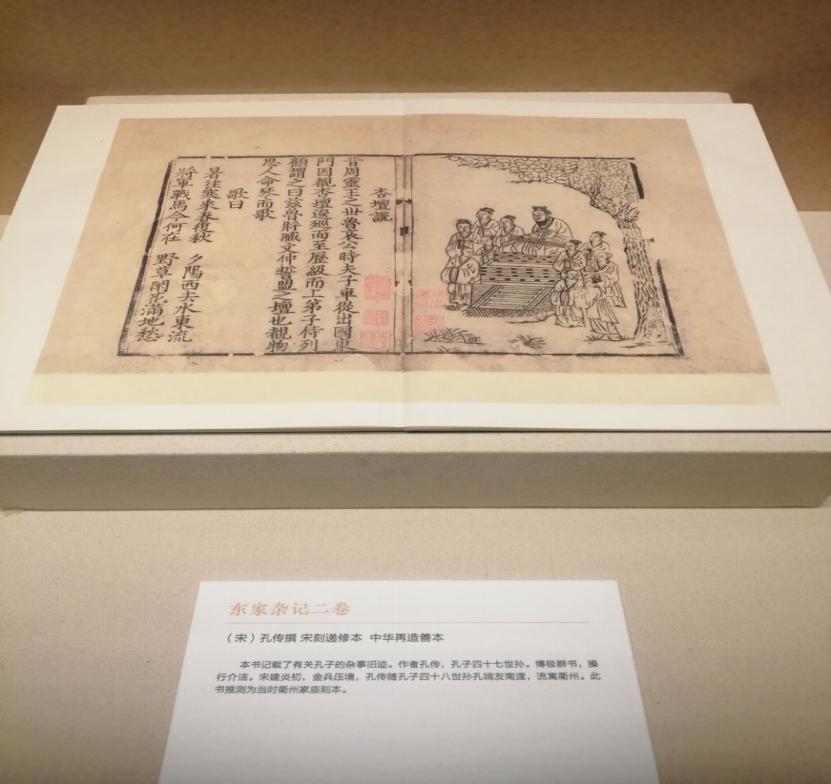 杏壇説
昔周靈王之世魯哀公時夫子車從出國東
門因覩杏壇逡巡而至歷級而上弟子侍列
顧謂之曰兹魯將臧文仲誓盟之壇也覩物
思人命琴而歌
歌曰
暑往寒來春復秋 夕陽西去水東流
將軍戰馬今何在 野草閑花滿地愁
东家杂记二卷
（宋）孔传撰 宋刻递修本 中华再造善本
本书记载了有关孔子的杂事旧迹。作者孔传，孔子四十七世孙。博极群书，操
行介洁。宋建炎初，金兵压境，孔传随孔子四十八世孙孔端友南渡，流寓衢州。此
书推测为当时衢州家庙刻本。